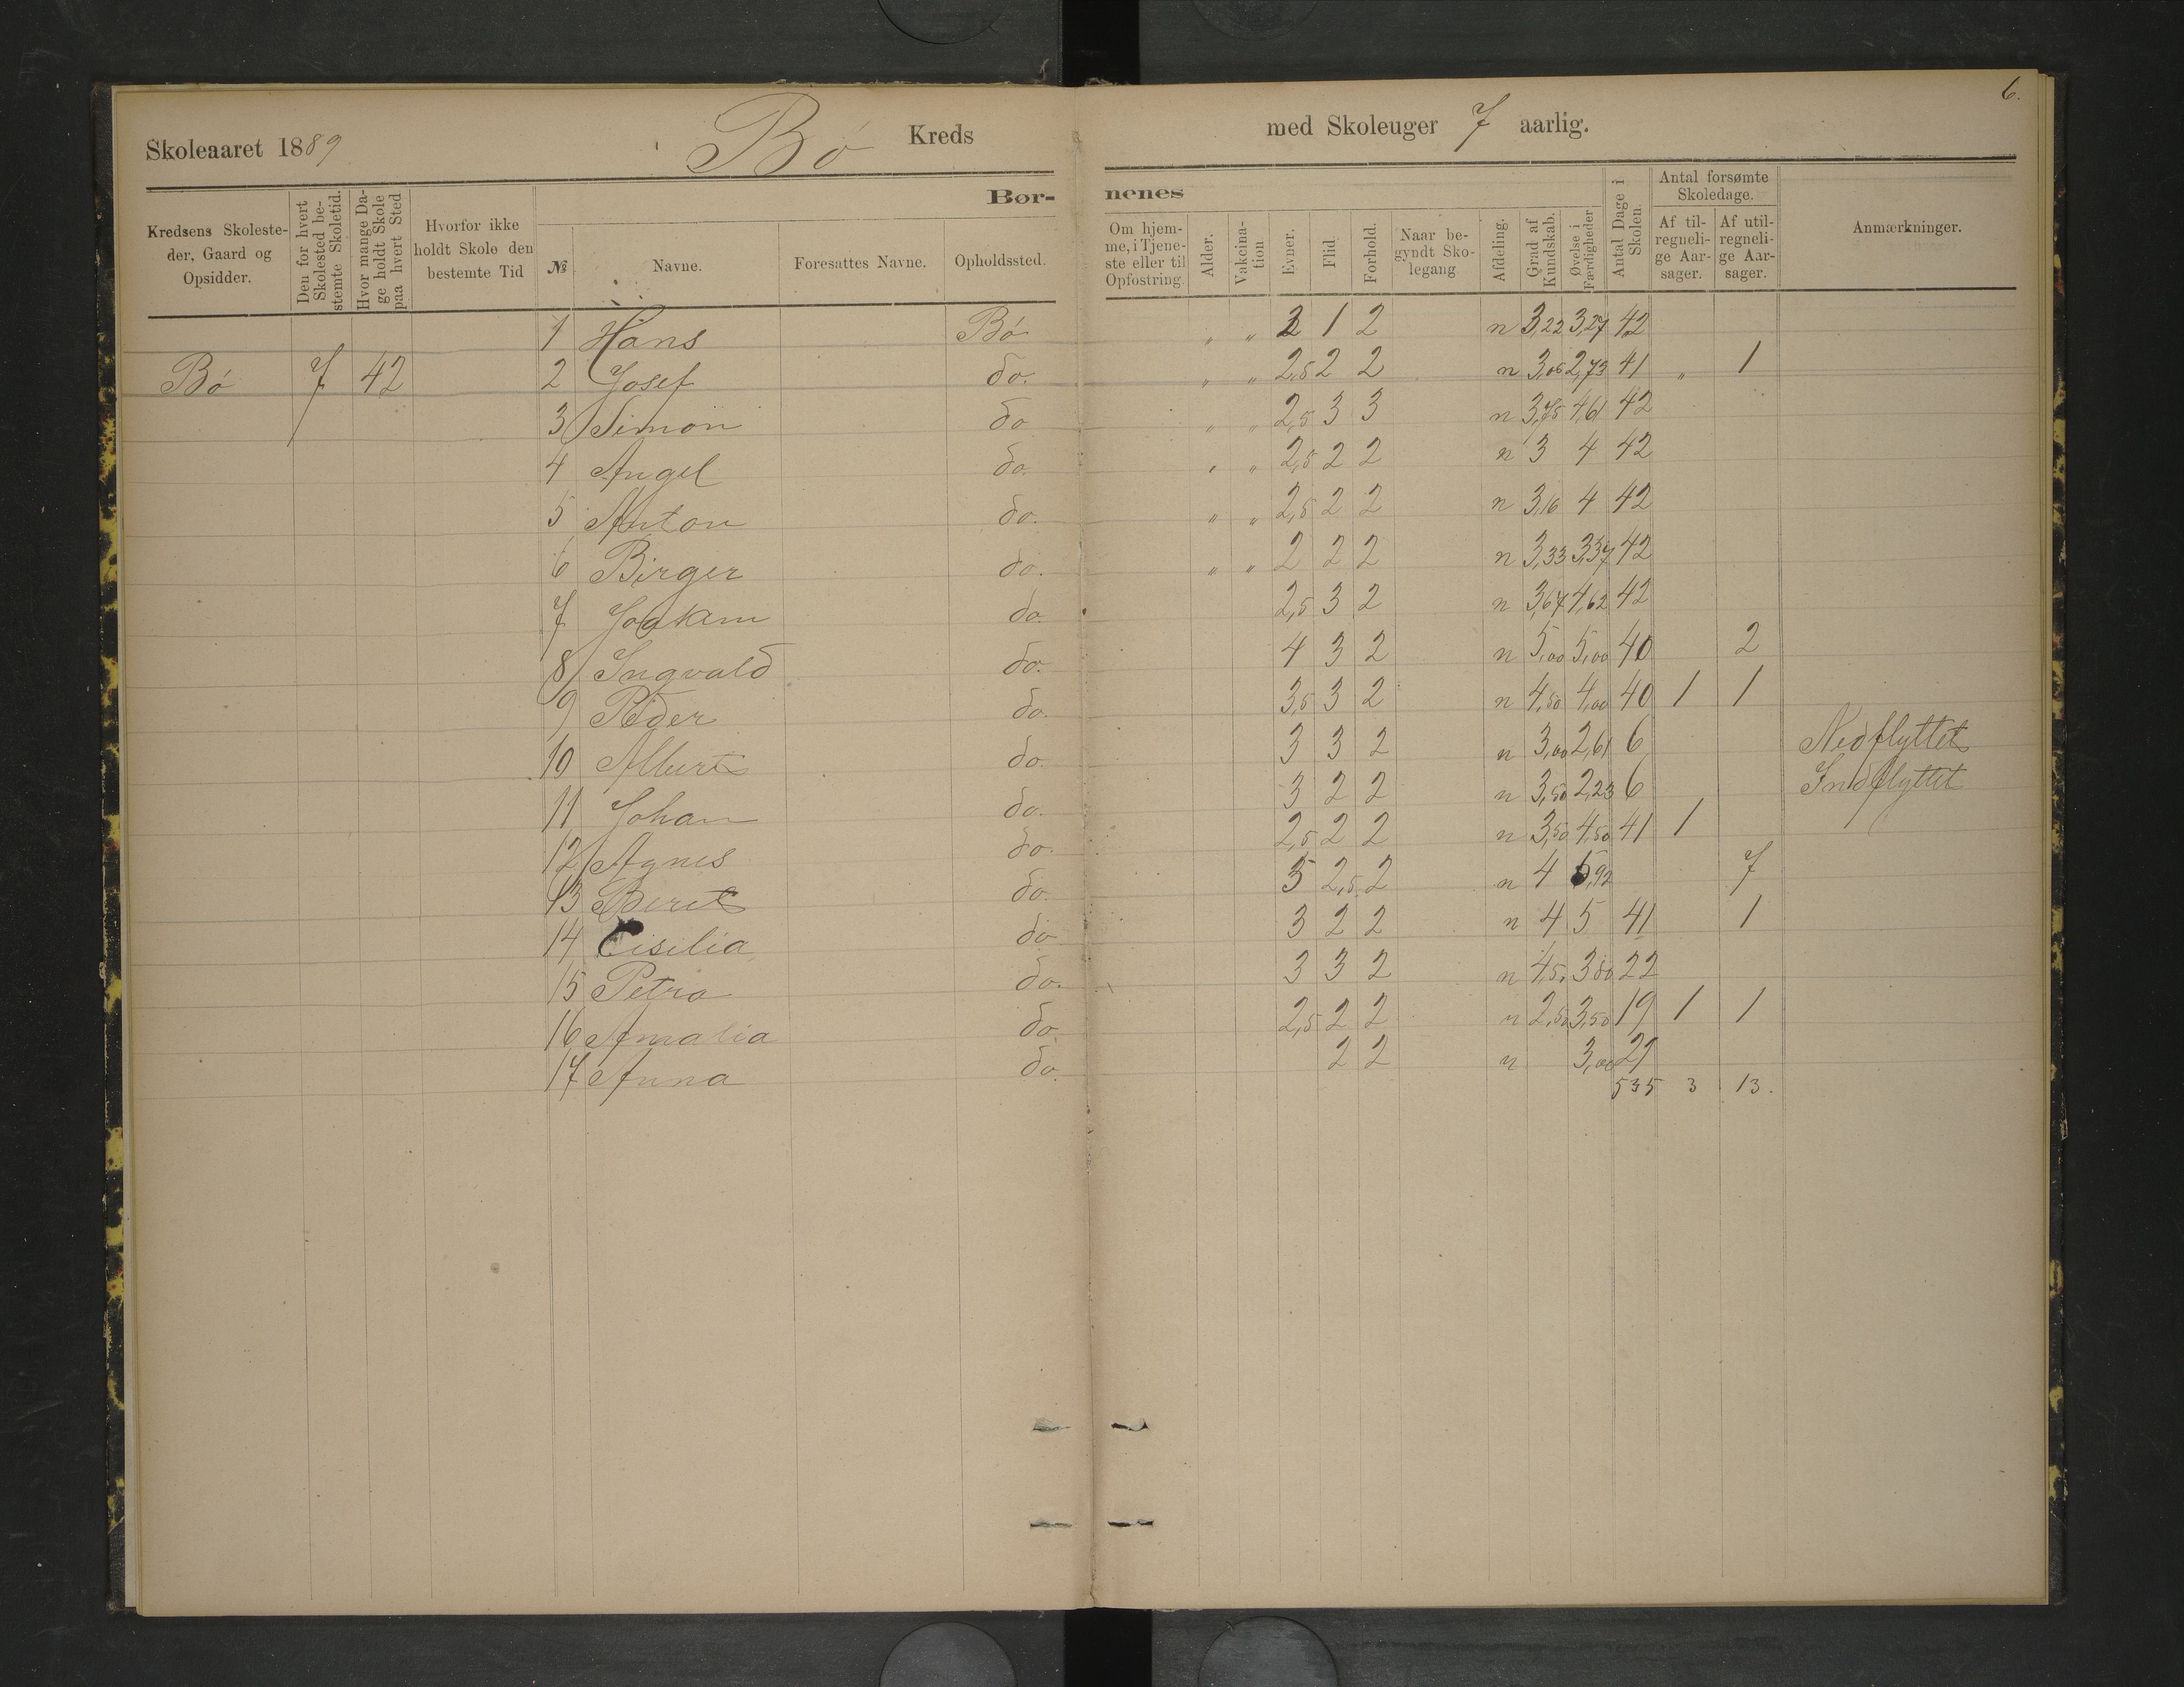 6.
Skoleaaret 1889 Bø Kreds med Skoleuger 7 aarlig.
Kredsens Skolesteder, Gaard og Opsidder.
Den for hvert Skolested bestemte Skoletid.
Hvor mange Dage holdt Skole paa hvert Sted
Hvorfor ikke holdt Skole den bestemte Tid
Børnenes
№
Navne.
Foresattes Navne.
Opholdssted.
Om hjemme, i Tjeneste eller til Opfostring.
Alder.
Vakcination.
Evner.
Flid.
Forhold.
Naar begyndt Skolegang
Afdeling.
Grad af Kundskab.
Øvelse i Færdigheder
Antal Dage i Skolen.
Antal forsømte Skoledage.
Af tilregnelige Aarsager.
Af utilregnelige Aarsager.
Anmærkninger.
1 Hans Bø " " 2 1 2 n 3,22 3,27 42
Bø 7 42 2 Josef do. " " 2,5 2 2 n 3,06 2,73 41 " 1
3 Simon do " " 2,5 3 3 n 3,75 4,61 42
4 Angel do. " " 2,5 2 2 n 3 4 42
5 Anton do. " " 2,5 2 2 n 3,16 4 42
6 Birger do. " " 2 2 2 n 3,33 3,37 42
7 Joakim do. 2,5 3 2 n 3,67 4,62 42
8 Ingvald do. 4 3 2 n 5,00 5,00 40 2
9 Peder do. 3,5 3 2 n 4,50 4,00 40 1 1
10 Albert do. 3 3 2 n 3,00 2,61 6 Nedflyttet
11 Johan do. 3 2 2 n 3,50 2,23 6 Indflyttet
12 Agnes do. 2,5 2 2 n 3,50 4,50 41 1
13 Berit do. 3 2,5 2 n 4 5,92 7
14 Cisilia do 3 2 2 n 4 5 41 1
15 Petra do. 3 3 2 n 4,50 3,80 22
16 Amalia do. 2,5 2 2 n 2,50 3,50 19 1 1
17 Anna do. 2 2 n 3,00 27
535 3 13.